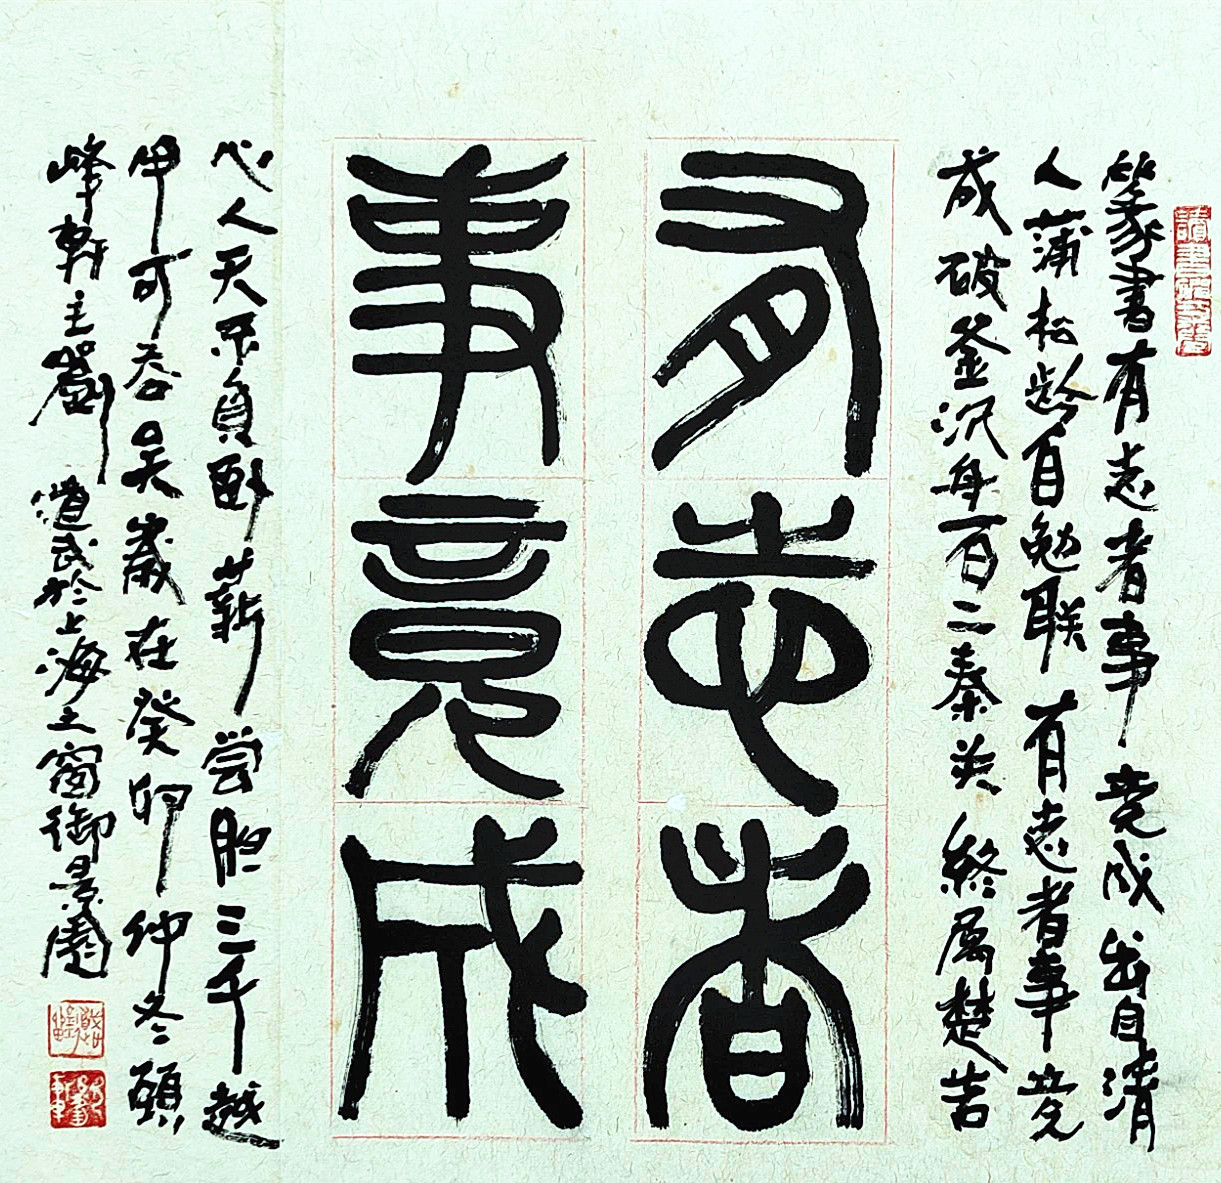 篆書有志者事竟成出自清
人蒲松齡自勉联有志者事竟
成破釜沉舟百二秦关終屬楚苦
有志者
事竟成
心人天不負卧薪嘗胆三千越
甲可吞吴嵗在癸卯仲冬頤
峰軒主劉道武於上海之窗御景園